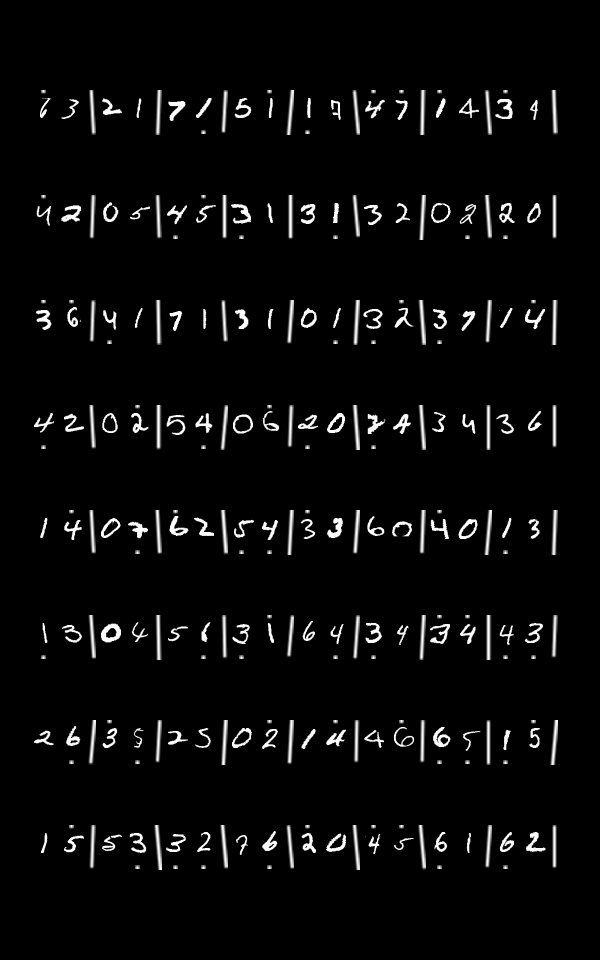 6 3 | 2 1 | 7 1 | 5 1 | 1 7 | 4 7 | 1 4 | 3 4 |
4 2 | 0 5 | 4 5 | 3 1 | 3 1 | 3 2 | 0 2 | 2 0 |
3 6 | 4 1 | 7 1 | 3 1 | 0 1 | 3 2 | 3 7 | 1 4 |
4 2 | 0 2 | 5 4 | 0 6 | 2 0 | 7 4 | 3 4 | 3 6 |
1 4 | 0 7 | 6 2 | 5 4 | 3 3 | 6 0 | 4 0 | 1 3 |
1 3 | 0 4 | 5 1 | 3 1 | 6 4 | 3 4 | 3 4 | 4 3 |
2 6 | 3 5 | 2 5 | 0 2 | 1 4 | 4 6 | 6 5 | 1 5 |
1 5 | 5 3 | 3 2 | 7 6 | 2 0 | 4 5 | 6 1 | 6 2 |